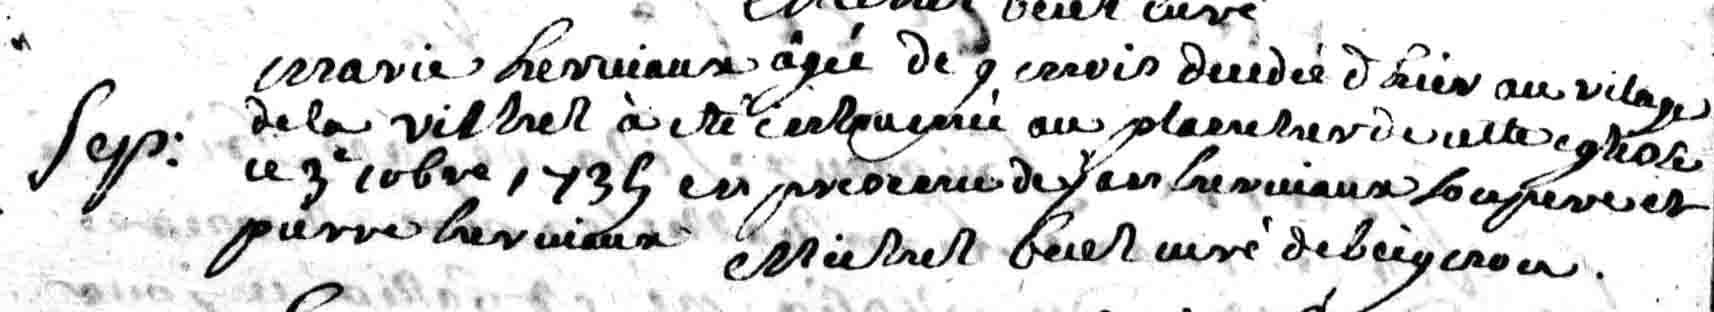 Michel beurel curé
Sep: marie herviaux âgée de 9 mois decedée d'hier au vilage
de la ville hel à eté inhumée au placitre de cette eglise
ce 3e 10bre 1735 en presence de jan herviaux son pere et
pierre herviaux Michel curé de beignon.